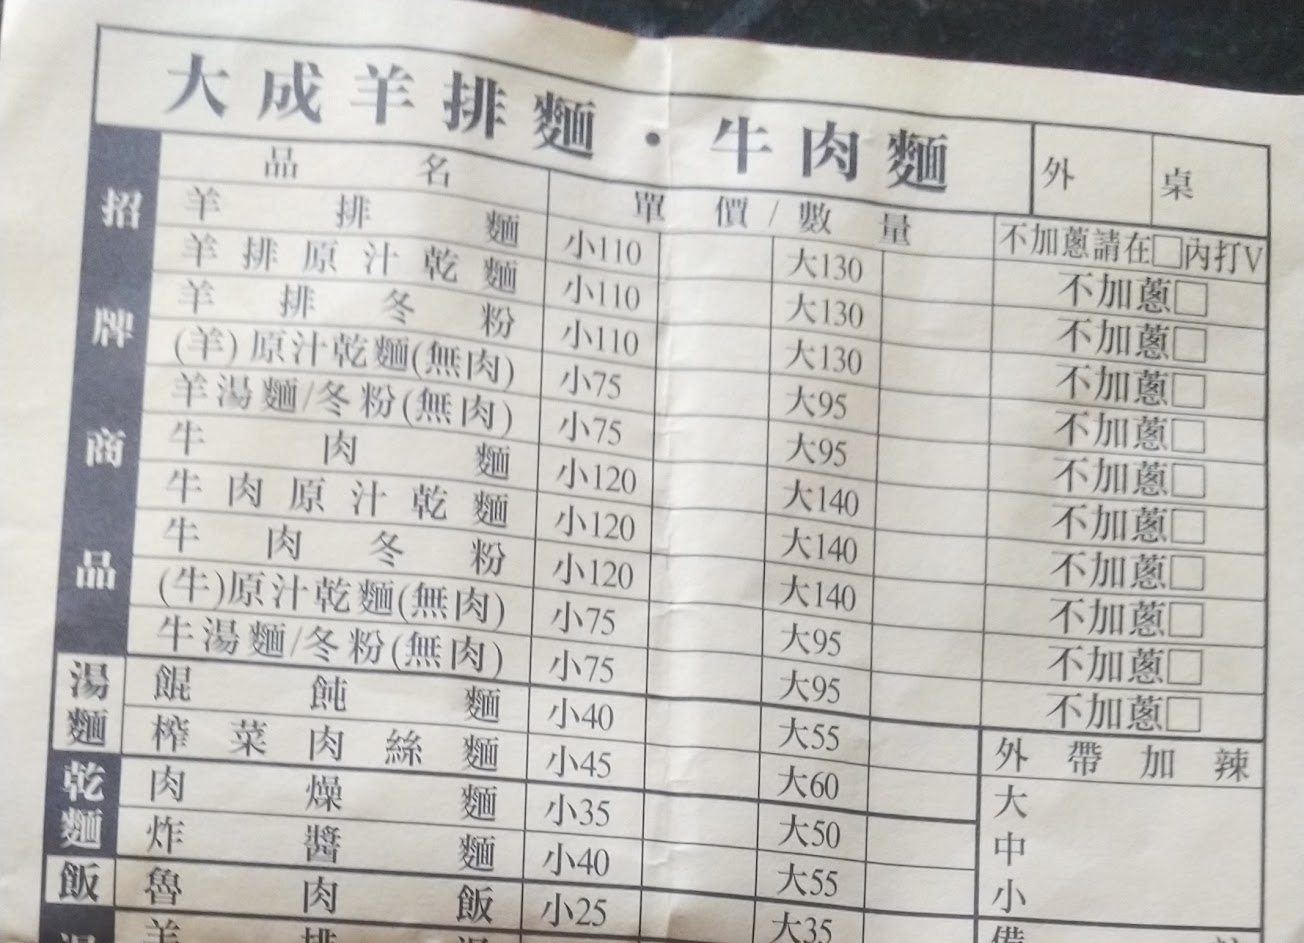 大成羊排麵・牛肉麵 外 桌
品名 單價/數量 不加蔥請在□內打V
招牌商品
羊排麵 小110 大130 不加蔥□
羊排原汁乾麵 小110 大130 不加蔥□
羊排冬粉 小110 大130 不加蔥□
(羊)原汁乾麵(無肉) 小75 大95 不加蔥□
羊湯麵/冬粉(無肉) 小75 大95 不加蔥□
牛肉麵 小120 大140 不加蔥□
牛肉原汁乾麵 小120 大140 不加蔥□
牛肉冬粉 小120 大140 不加蔥□
(牛)原汁乾麵(無肉) 小75 大95 不加蔥□
牛湯麵/冬粉(無肉) 小75 大95 不加蔥□
湯麵
餛飩麵 小40 大55
榨菜肉絲麵 小45 大60
乾麵
肉燥麵 小35 大50
炸醬麵 小40 大55
飯
魯肉飯 小25 大35
外帶加辣
大
中
小
羊排湯